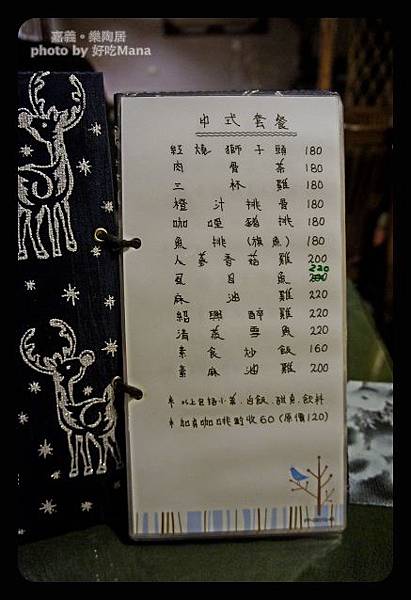 嘉義。樂陶居
photo by 好吃Mana
中式套餐
紅燒獅子頭 180
肉骨茶 180
三杯雞 180
橙汁排骨 180
咖哩豬排 180
魚排(旗魚) 180
人蔘香菇雞 200
虱目魚 220 200
麻油雞 220
紹興醉雞 220
清蒸雪魚 220
素食炒飯 160
素麻油雞 200
*以上包括小菜.白飯.甜點.飲料
*如有咖啡酌收60(原價120)